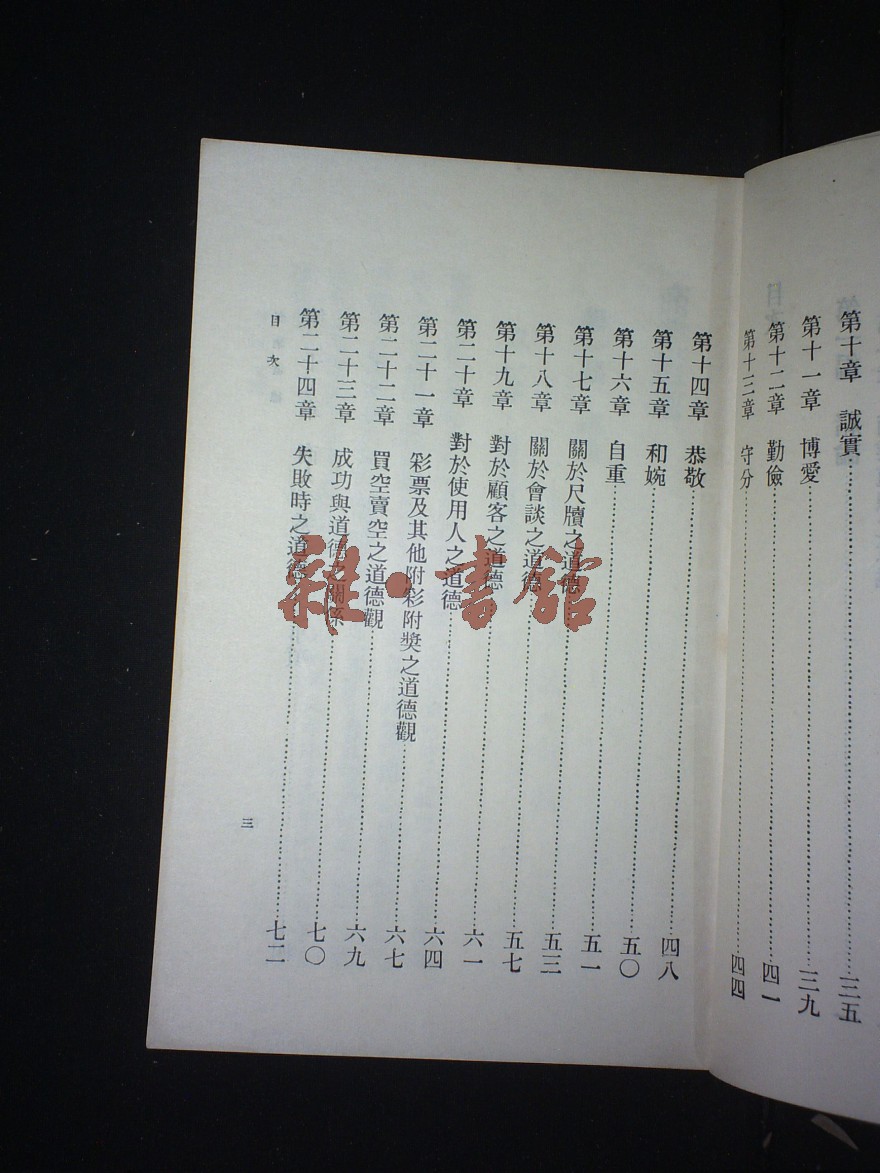 第十章　誠實……三五
第十一章　博愛……三九
第十二章　勤儉……四一
第十三章　守分……四四
第十四章　恭敬……四八
第十五章　和婉……五〇
第十六章　自重……五一
第十七章　關於尺牘之道德……五三
第十八章　關於會談之道德……五七
第十九章　對於顧客之道德……六一
第二十章　對於使用人之道德……六四
第二十一章　彩票及其他附彩附獎之道德觀……六七
第二十二章　買空賣空之道德觀……六九
第二十三章　成功與道德之關係……七〇
第二十四章　失敗時之道德……七二
目次
三
雜·書館